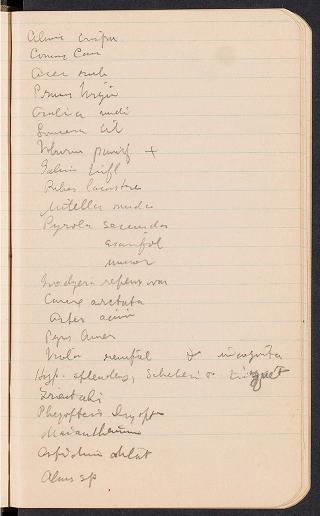 Alnus crispa
Cornus Can
Acer rub
Prunus Virgin
Aralia nudi
Lonicera
Viburn paucif +
Galium trifl
Ribes lacustre
Mitella nuda
Pyrola secunda
asarifol
minor
Goodyera repens var
Carex arctata
Aster acum
Pyrus Amer
Viola renifol & incognita
Hyp. splendens, Schreberi &
Trientalis
Phegopteris Dryopt
Maianthemum
Aspidium dilat
Abies sp